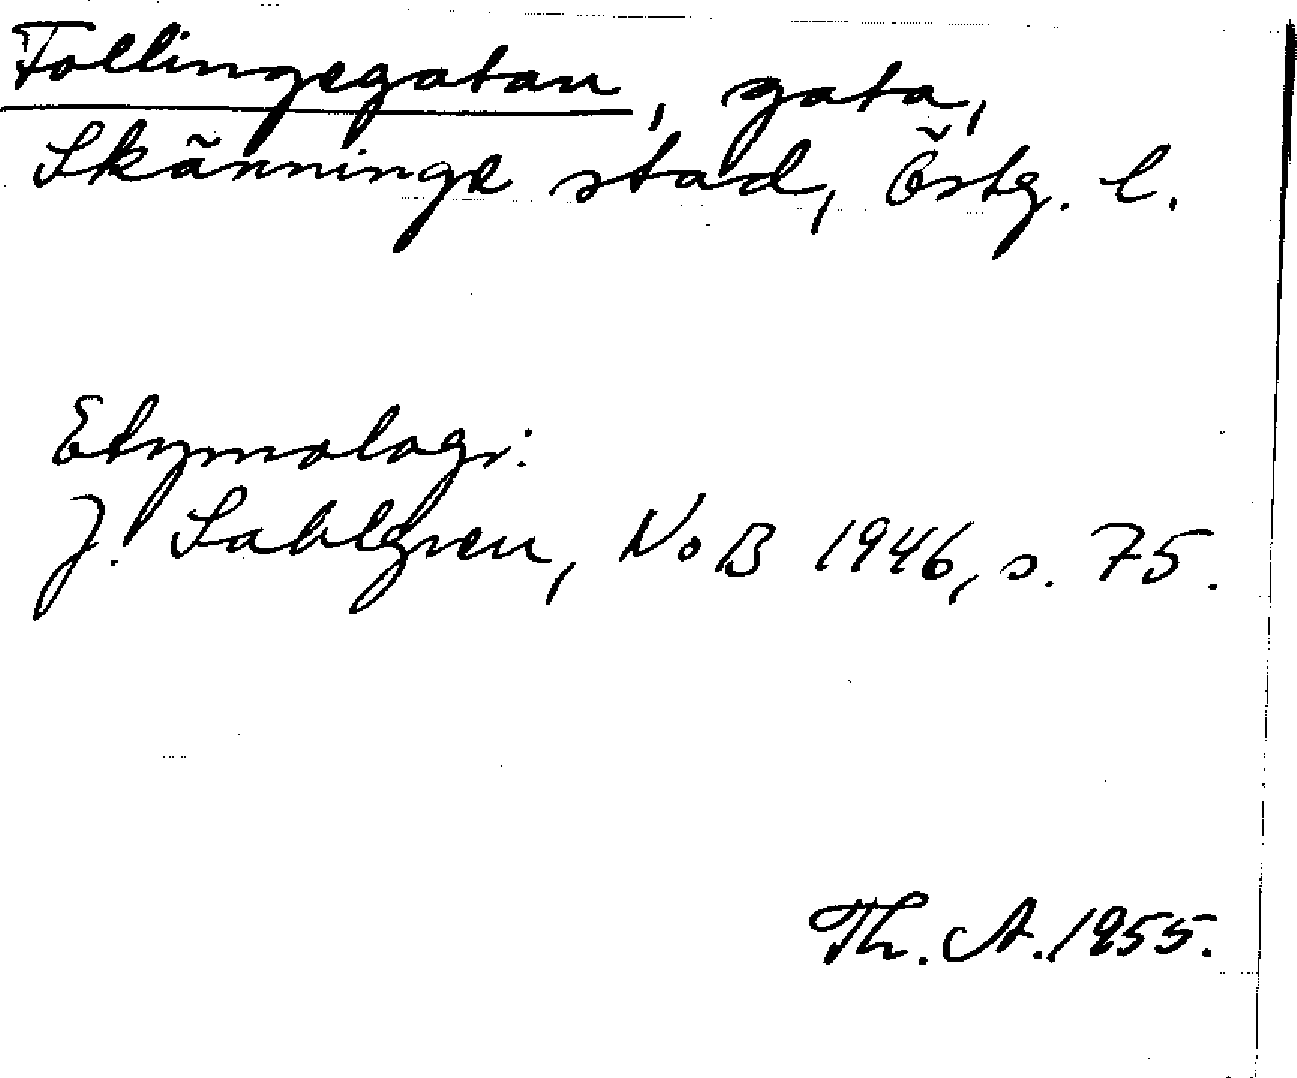 Follingegatan, gata,
Skänninge stad, Östg. l.
Etymologi:
J. Sahlgren, NoB 1946, s. 75.
Th. A. 1955.